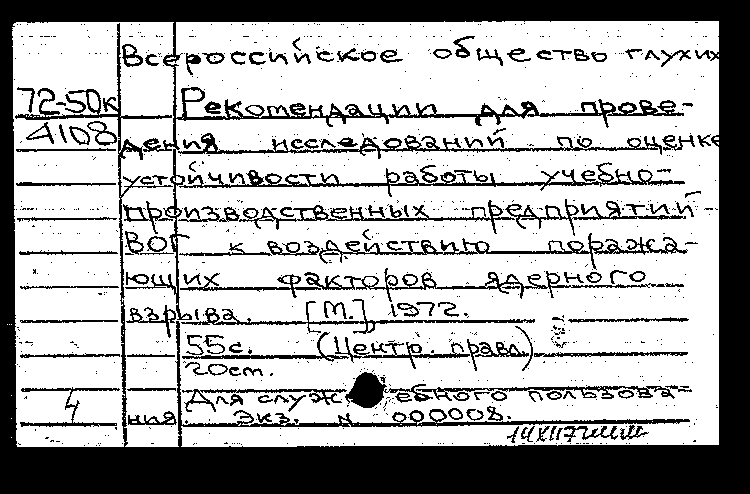 Всероссийское общество глухих
72-50к Рекомендации для прове-
4108 дения исследований по оценке
устойчивости работы учебно-
производственных предприятий
ВОГ к воздействию поража-
ющих факторов ядерного
взрыва. [М.], 1972.
55с. (Центр. правл.)
20см.
Для служебного пользова-
4 ния. Экз. N 000008.